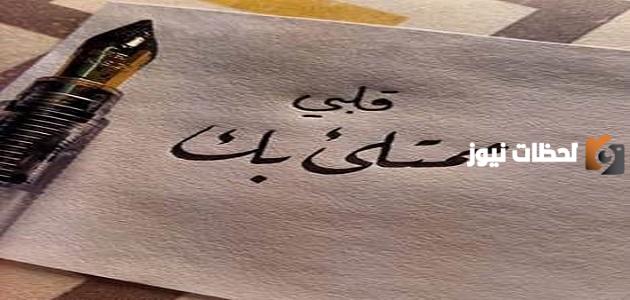 قلبي
ممتلئ بك
لحظات نيوز